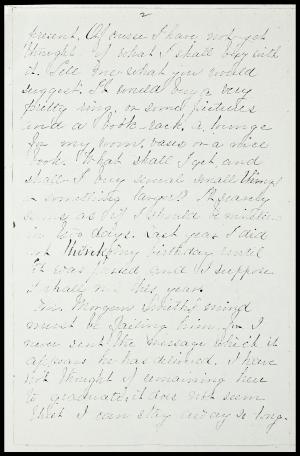 2
present. Of course I have not yet
thought of what I shall buy with
it. Tell me what you would
suggest. It would buy a very
pretty ring, or some pictures
and a book-rack, a lounge
for my room, vases or a nice
book. What shall I get and
shall I buy several small things
or something larger? It scarcely
seems as if I should be nineteen
in two days. Last year I did
not think of my birthday until
it was passed and I suppose
I shall not this year.
Morgan Smith's mind
must be failing him for I
never sent the message which it
appears he has delivered. I have
not thought of remaining here
to graduate, it does not seem
that I can stay away so long.